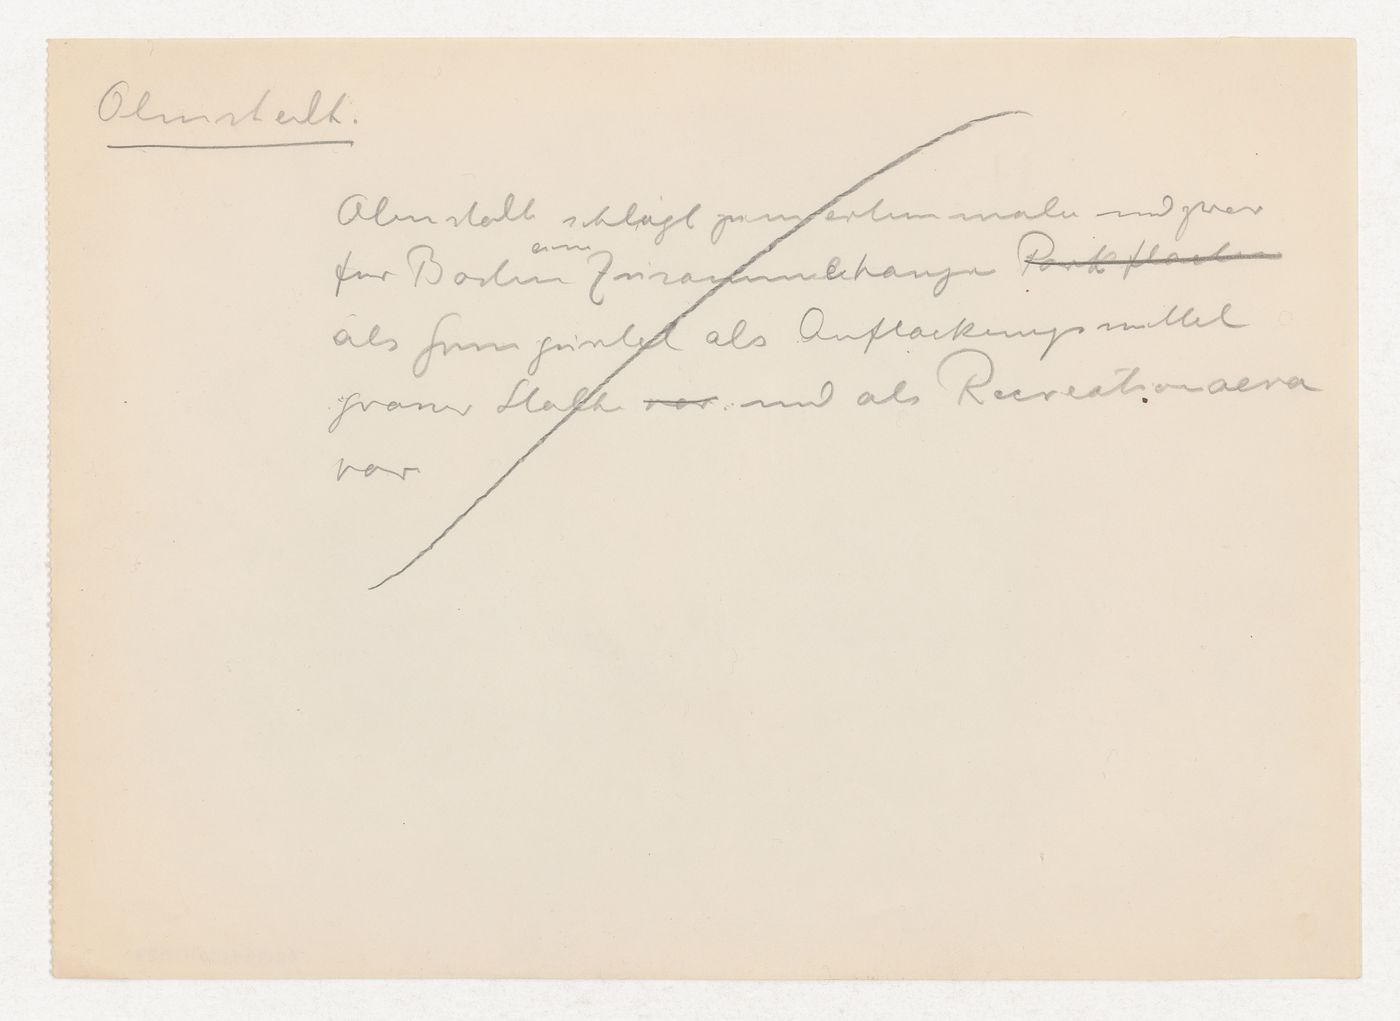 Olmstedt.
Olmstedt schlägt zum erstenmale und zwar
für Boston eine Zusammenhänge Parkflächen
als Grüngürtel als Auflockerungsmittel
grosser Städte vor. und als Recreationaera
vor